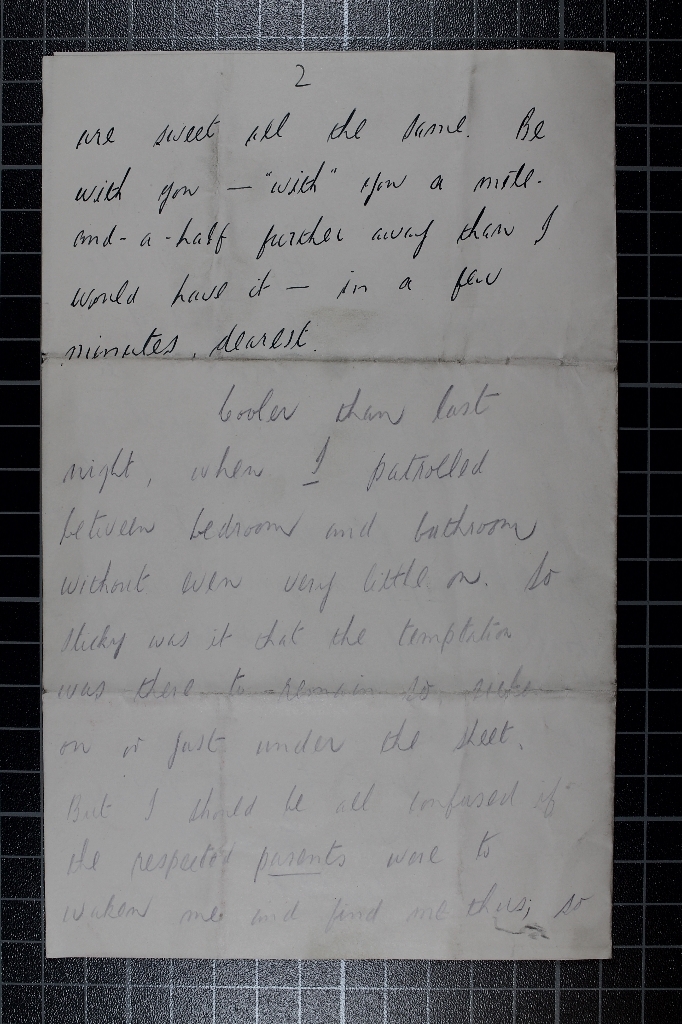 2
are sweet all the same. Be
with you — "with" you a mile-
and-a-half further away than I
would have it — in a few
minutes, dearest.
Cooler than last
night, when I patrolled
between bedroom and bathroom
without even very little on. So
sticky was it that the temptation
was there to remain so either
on or just under the sheet.
But I should be all confused if
the respected parents were to
waken me and find me thus; so